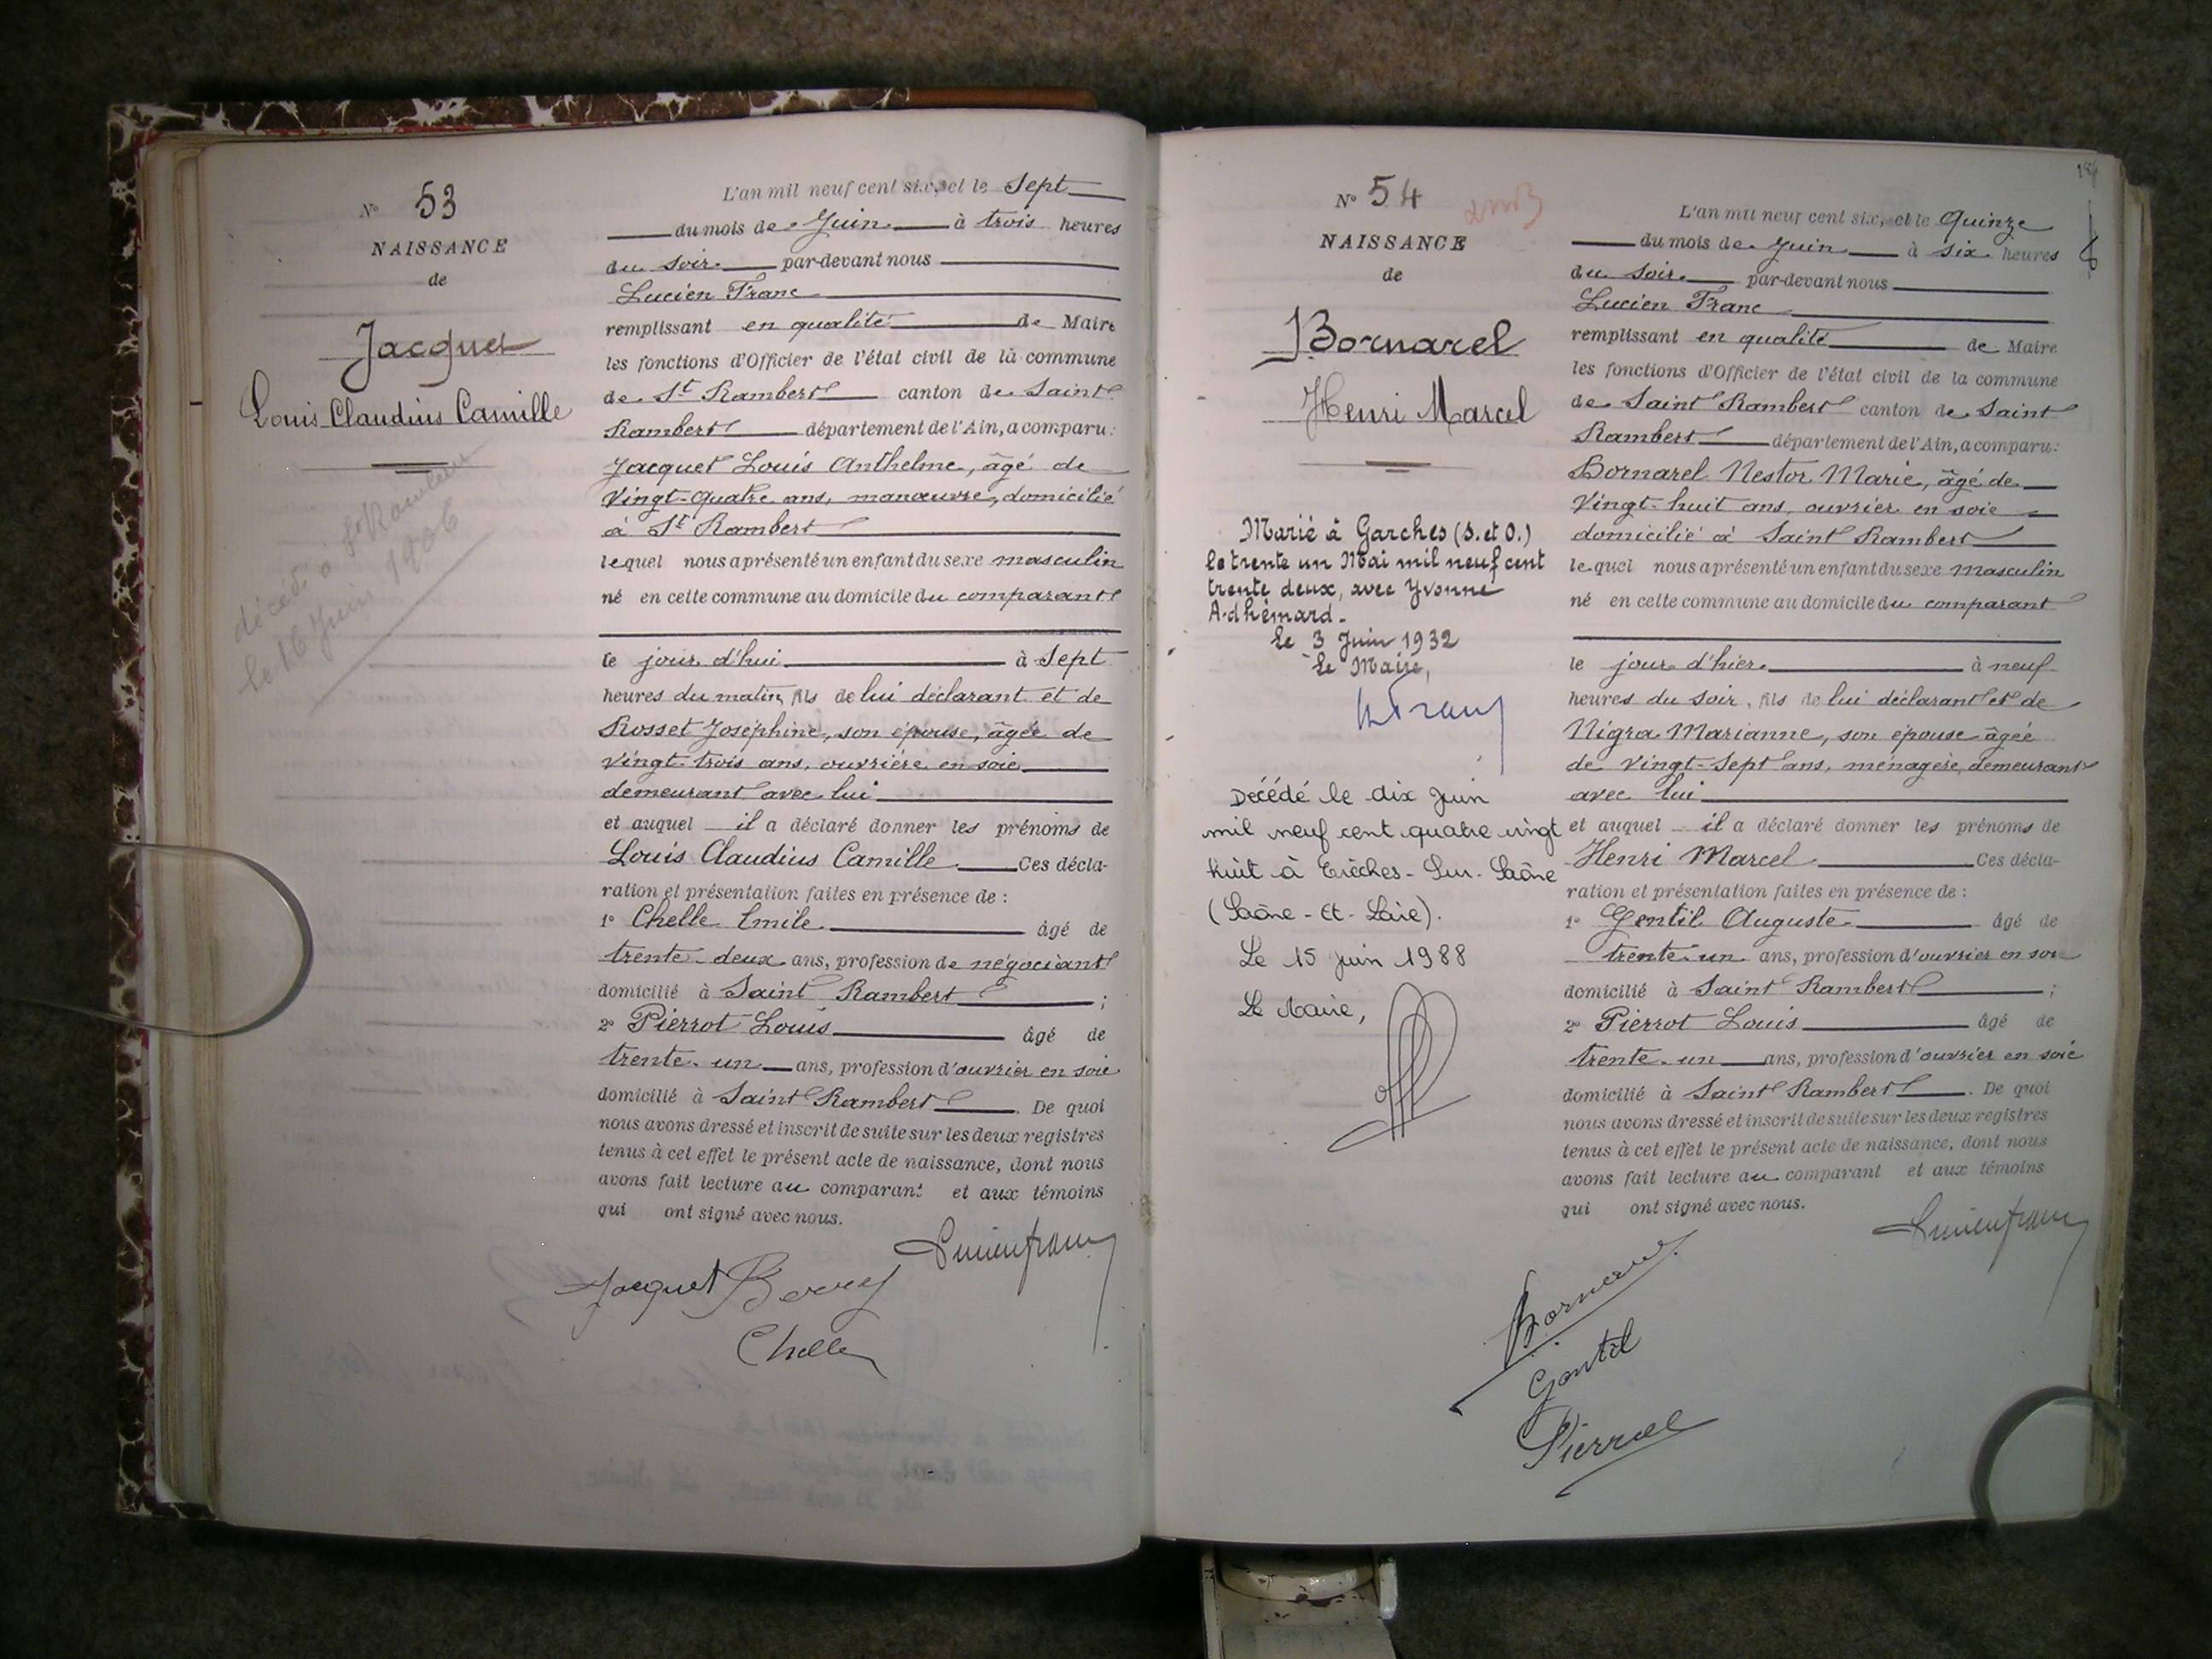 N° 53
NAISSANCE
de
Jacquet
Louis Claudius Camille
décédé à St Rambert
le 16 Juin 1906
L'an mil neuf cent six, et le Sept
du mois de Juin à trois heures
du soir par-devant nous
Lucien Franc
remplissant en qualité de Maire
les fonctions d'Officier de l'état civil de la commune
de St Rambert canton de Saint
Rambert département de l'Ain, a comparu:
Jacquet Louis Anthelme, âgé de
Vingt-quatre ans, manœuvre, domicilié
à St Rambert
lequel nous a présenté un enfant du sexe masculin
né en cette commune au domicile du comparant
le jour d'hui à Sept
heures du matin, fils de lui déclarant et de
Rosset Joséphine, son épouse, âgée de
Vingt-trois ans, ouvrière en soie
demeurant avec lui
et auquel il a déclaré donner les prénoms de
Louis Claudius Camille Ces décla-
ration et présentation faites en présence de :
1° Chelle Emile âgé de
trente-deux ans, profession de négociant
domicilié à Saint Rambert ;
2° Pierrot Louis âgé de
trente-un ans, profession d'ouvrier en soie
domicilié à Saint Rambert. De quoi
nous avons dressé et inscrit de suite sur les deux registres
tenus à cet effet le présent acte de naissance, dont nous
avons fait lecture au comparant et aux témoins
qui ont signé avec nous.
Lucien franc
Jacquet
Chelle
N° 54
NAISSANCE
de
Bornarel
Henri Marcel
Marié à Garches (S. et O.)
le trente un Mai mil neuf cent
trente deux, avec Yvonne
Adhémard.
Le 3 Juin 1932
Le Maire,
Décédé le dix juin
mil neuf cent quatre vingt
huit à Crêches-Sur-Saône
(Saône-Et-Loire).
Le 15 juin 1988
Le Maire,
L'an mil neuf cent six, et le Quinze
du mois de Juin à six heures
du soir par-devant nous
Lucien Franc
remplissant en qualité de Maire
les fonctions d'Officier de l'état civil de la commune
de Saint Rambert canton de Saint
Rambert département de l'Ain, a comparu:
Bornarel Nestor Marie, âgé de
Vingt-huit ans, ouvrier en soie
domicilié à Saint Rambert
lequel nous a présenté un enfant du sexe masculin
né en cette commune au domicile du comparant
le jour d'hier à neuf
heures du soir, fils de lui déclarant et de
Nigra Marianne, son épouse âgée
de Vingt-Sept ans, ménagère, demeurant
avec lui
et auquel il a déclaré donner les prénoms de
Henri Marcel Ces décla-
ration et présentation faites en présence de :
1° Gentil Auguste âgé de
trente-un ans, profession d'ouvrier en soie
domicilié à Saint Rambert ;
2° Pierrot Louis âgé de
trente-un ans, profession d'ouvrier en soie
domicilié à Saint Rambert. De quoi
nous avons dressé et inscrit de suite sur les deux registres
tenus à cet effet le présent acte de naissance, dont nous
avons fait lecture au comparant et aux témoins
qui ont signé avec nous.
Lucien franc
Bornarel
Gentil
Pierrot